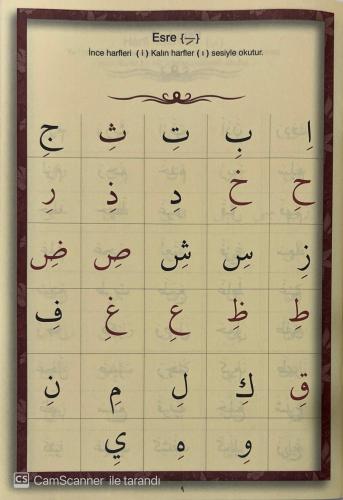 Esre {ـِ}
İnce harfleri ( i ) Kalın harfler ( ı ) sesiyle okutur.
اِ بِ تِ ثِ جِ
حِ خِ دِ ذِ رِ
زِ سِ شِ صِ ضِ
طِ ظِ عِ غِ فِ
قِ كِ لِ مِ نِ
وِ هِ يِ
٩
CS CamScanner ile tarandı